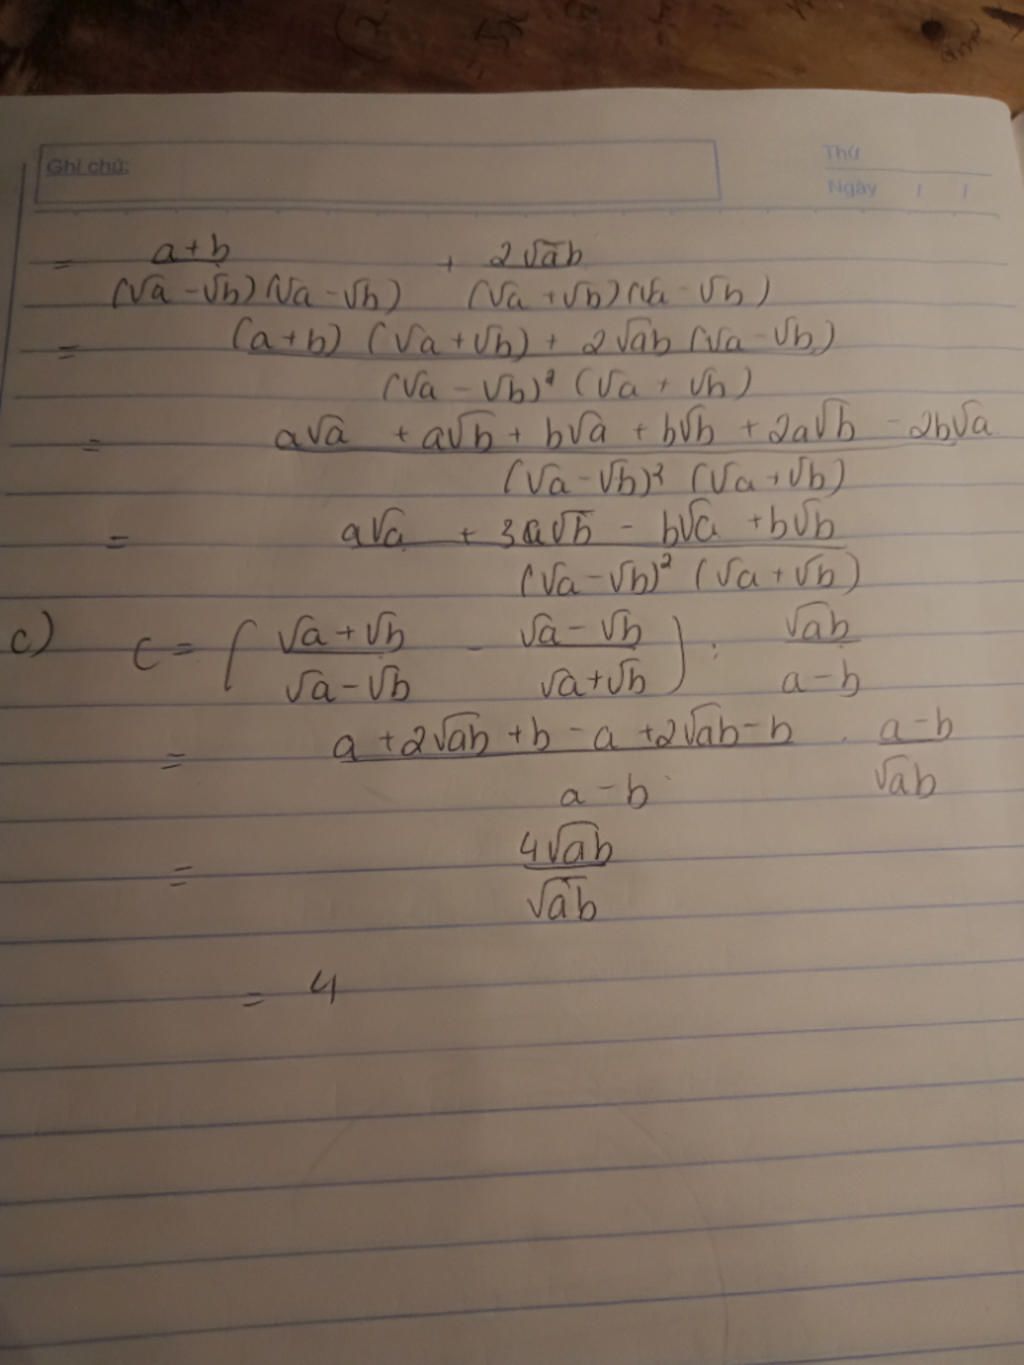 Ghi chú:
Thứ
Ngày / /
= (a+b)/((√a - √b)(√a - √b)) + 2√ab/((√a + √b)(√a - √b))
= ((a+b)(√a+√b) + 2√ab(√a-√b))/((√a - √b)²(√a + √b))
= (a√a + a√b + b√a + b√b + 2a√b - 2b√a)/((√a-√b)²(√a+√b))
= (a√a + 3a√b - b√a + b√b)/((√a-√b)²(√a+√b))
c) C = ((√a+√b)/(√a-√b) - (√a-√b)/(√a+√b)) : √ab/(a-b)
= (a+2√ab+b-a+2√ab-b)/(a-b) . (a-b)/√ab
= 4√ab/√ab
= 4